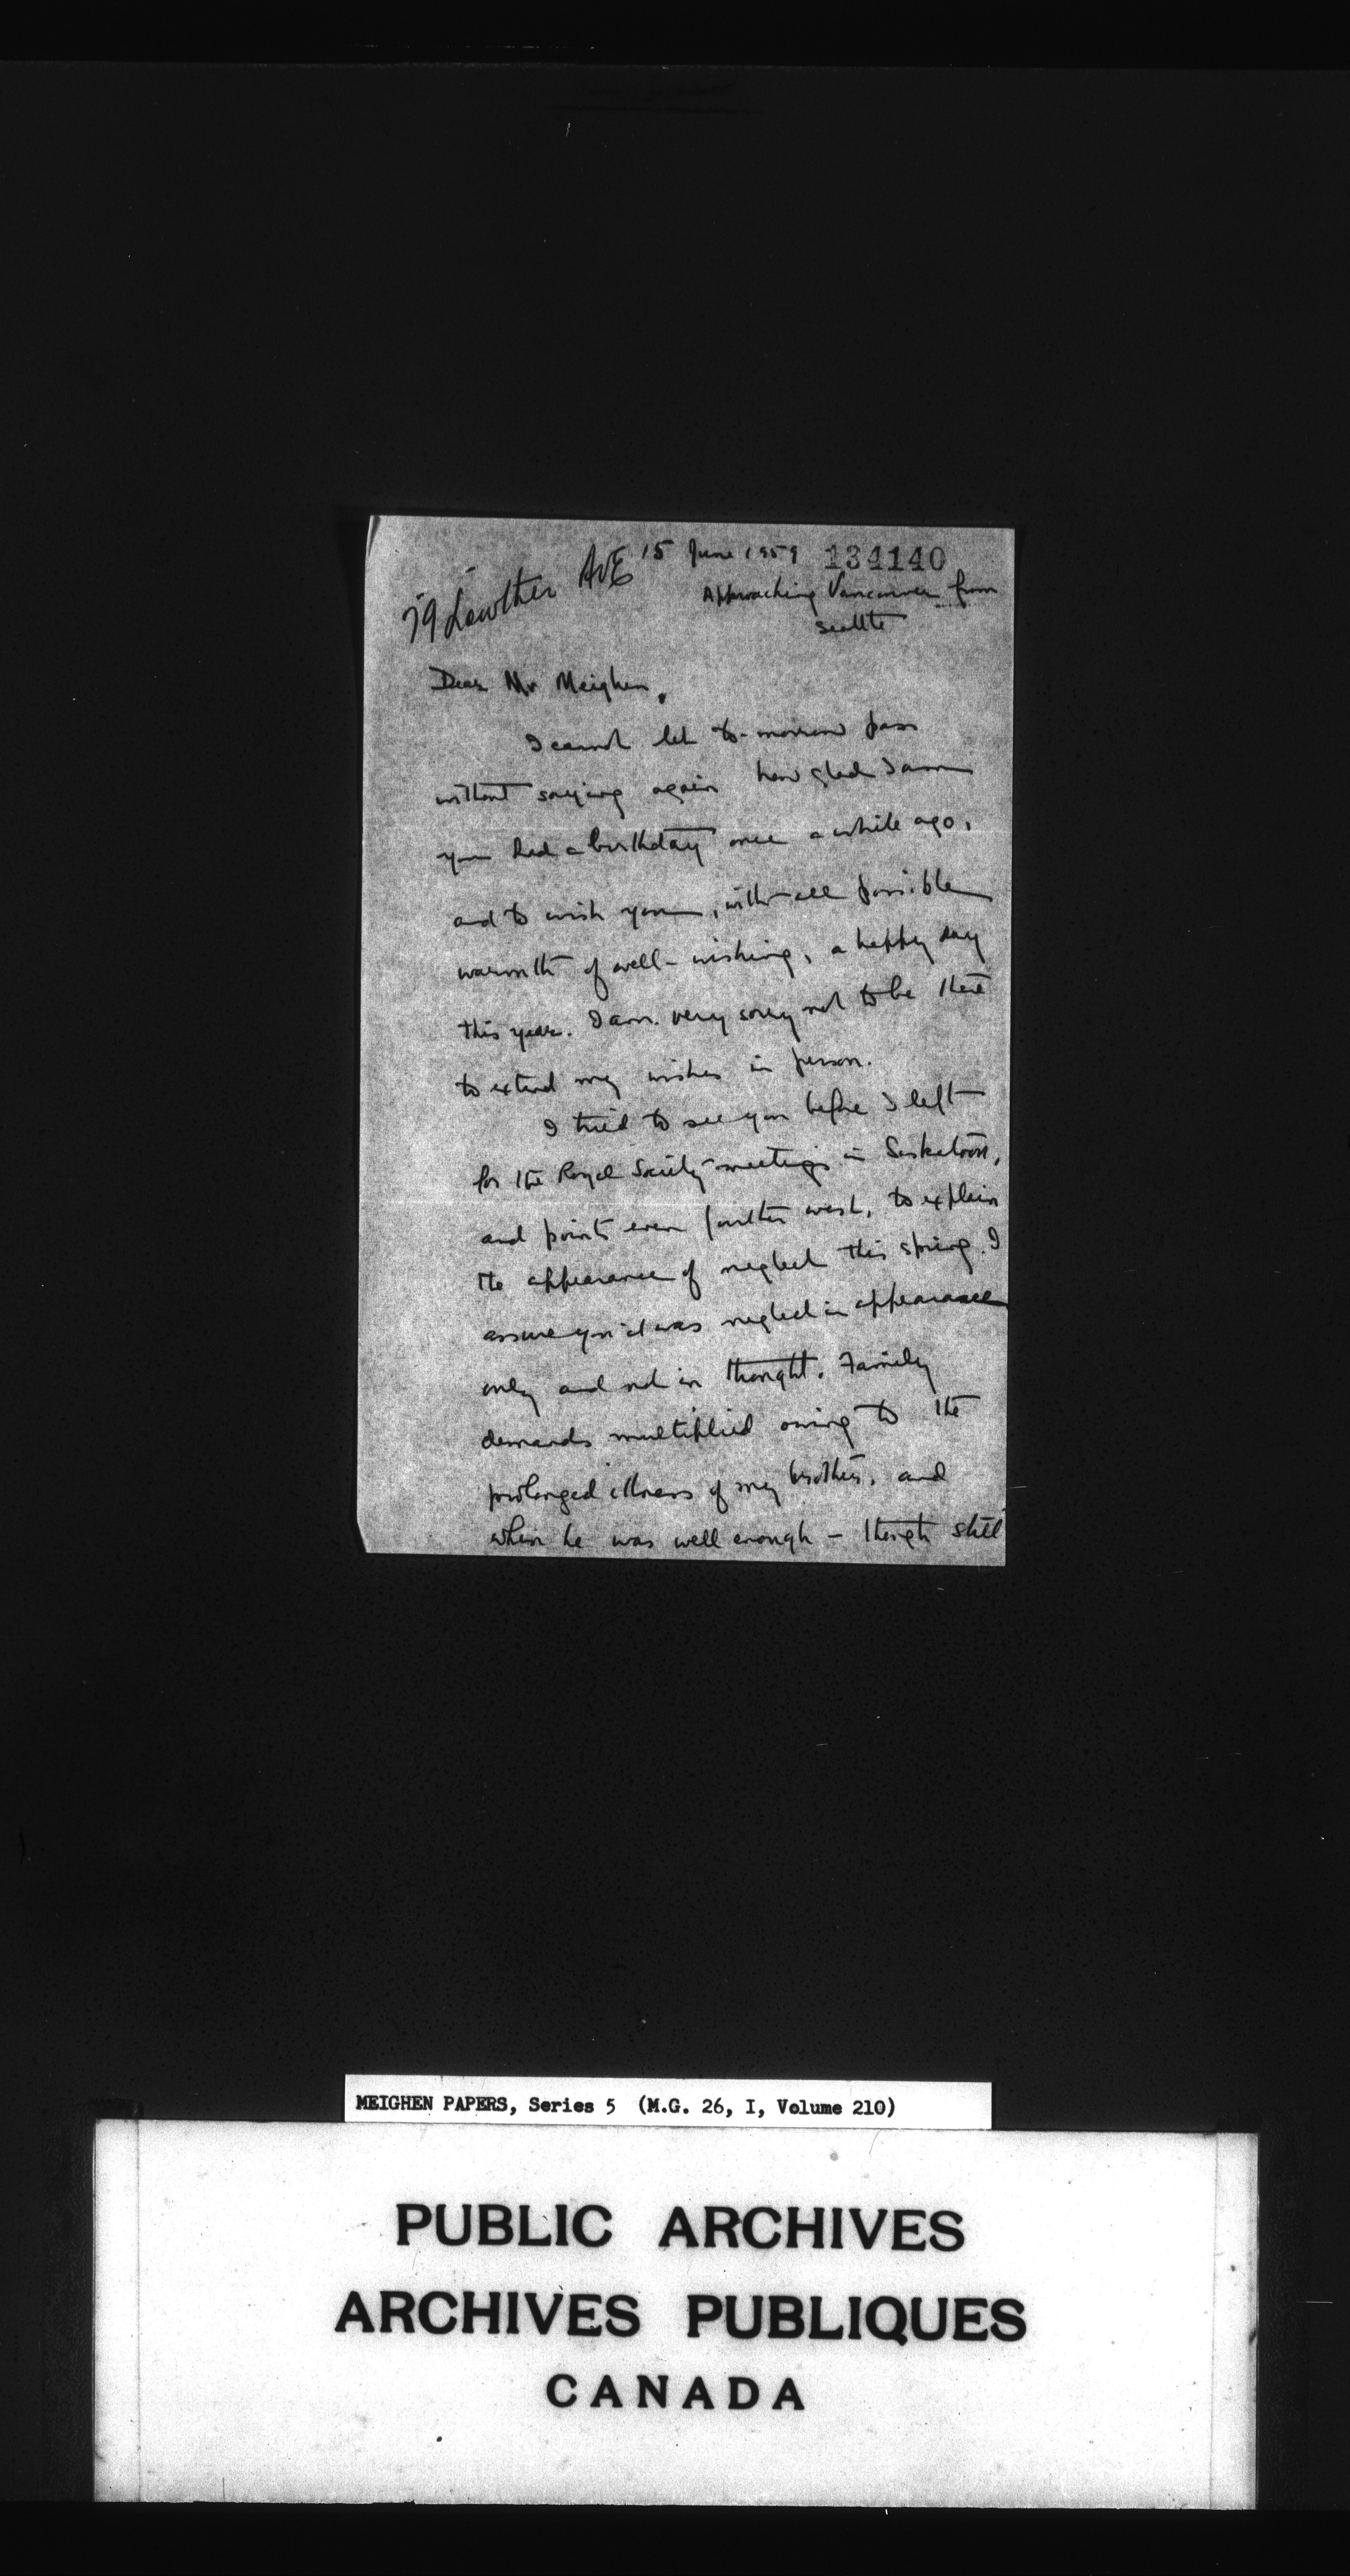 15 June 1959 134140
79 Lowther AVE
Approaching Vancouver from
Seattle
Dear Mr Meighen,
I cannot let to-morrow pass
without saying again how glad I am
you had a birthday once a while ago,
and to wish you, with all possible
warmth of well-wishing, a happy day
this year. I am very sorry not to be there
to extend my wishes in person.
I tried to see you before I left
for the Royal Society meetings in Saskatoon,
and points even further west, to explain
the appearance of neglect this spring. I
assure you it was neglect in appearance
only and not in thought. Family
demands multiplied owing to the
prolonged illness of my brother, and
when he was well enough - though still
MEIGHEN PAPERS, Series 5 (M.G. 26, I, Volume 210)
PUBLIC ARCHIVES
ARCHIVES PUBLIQUES
CANADA